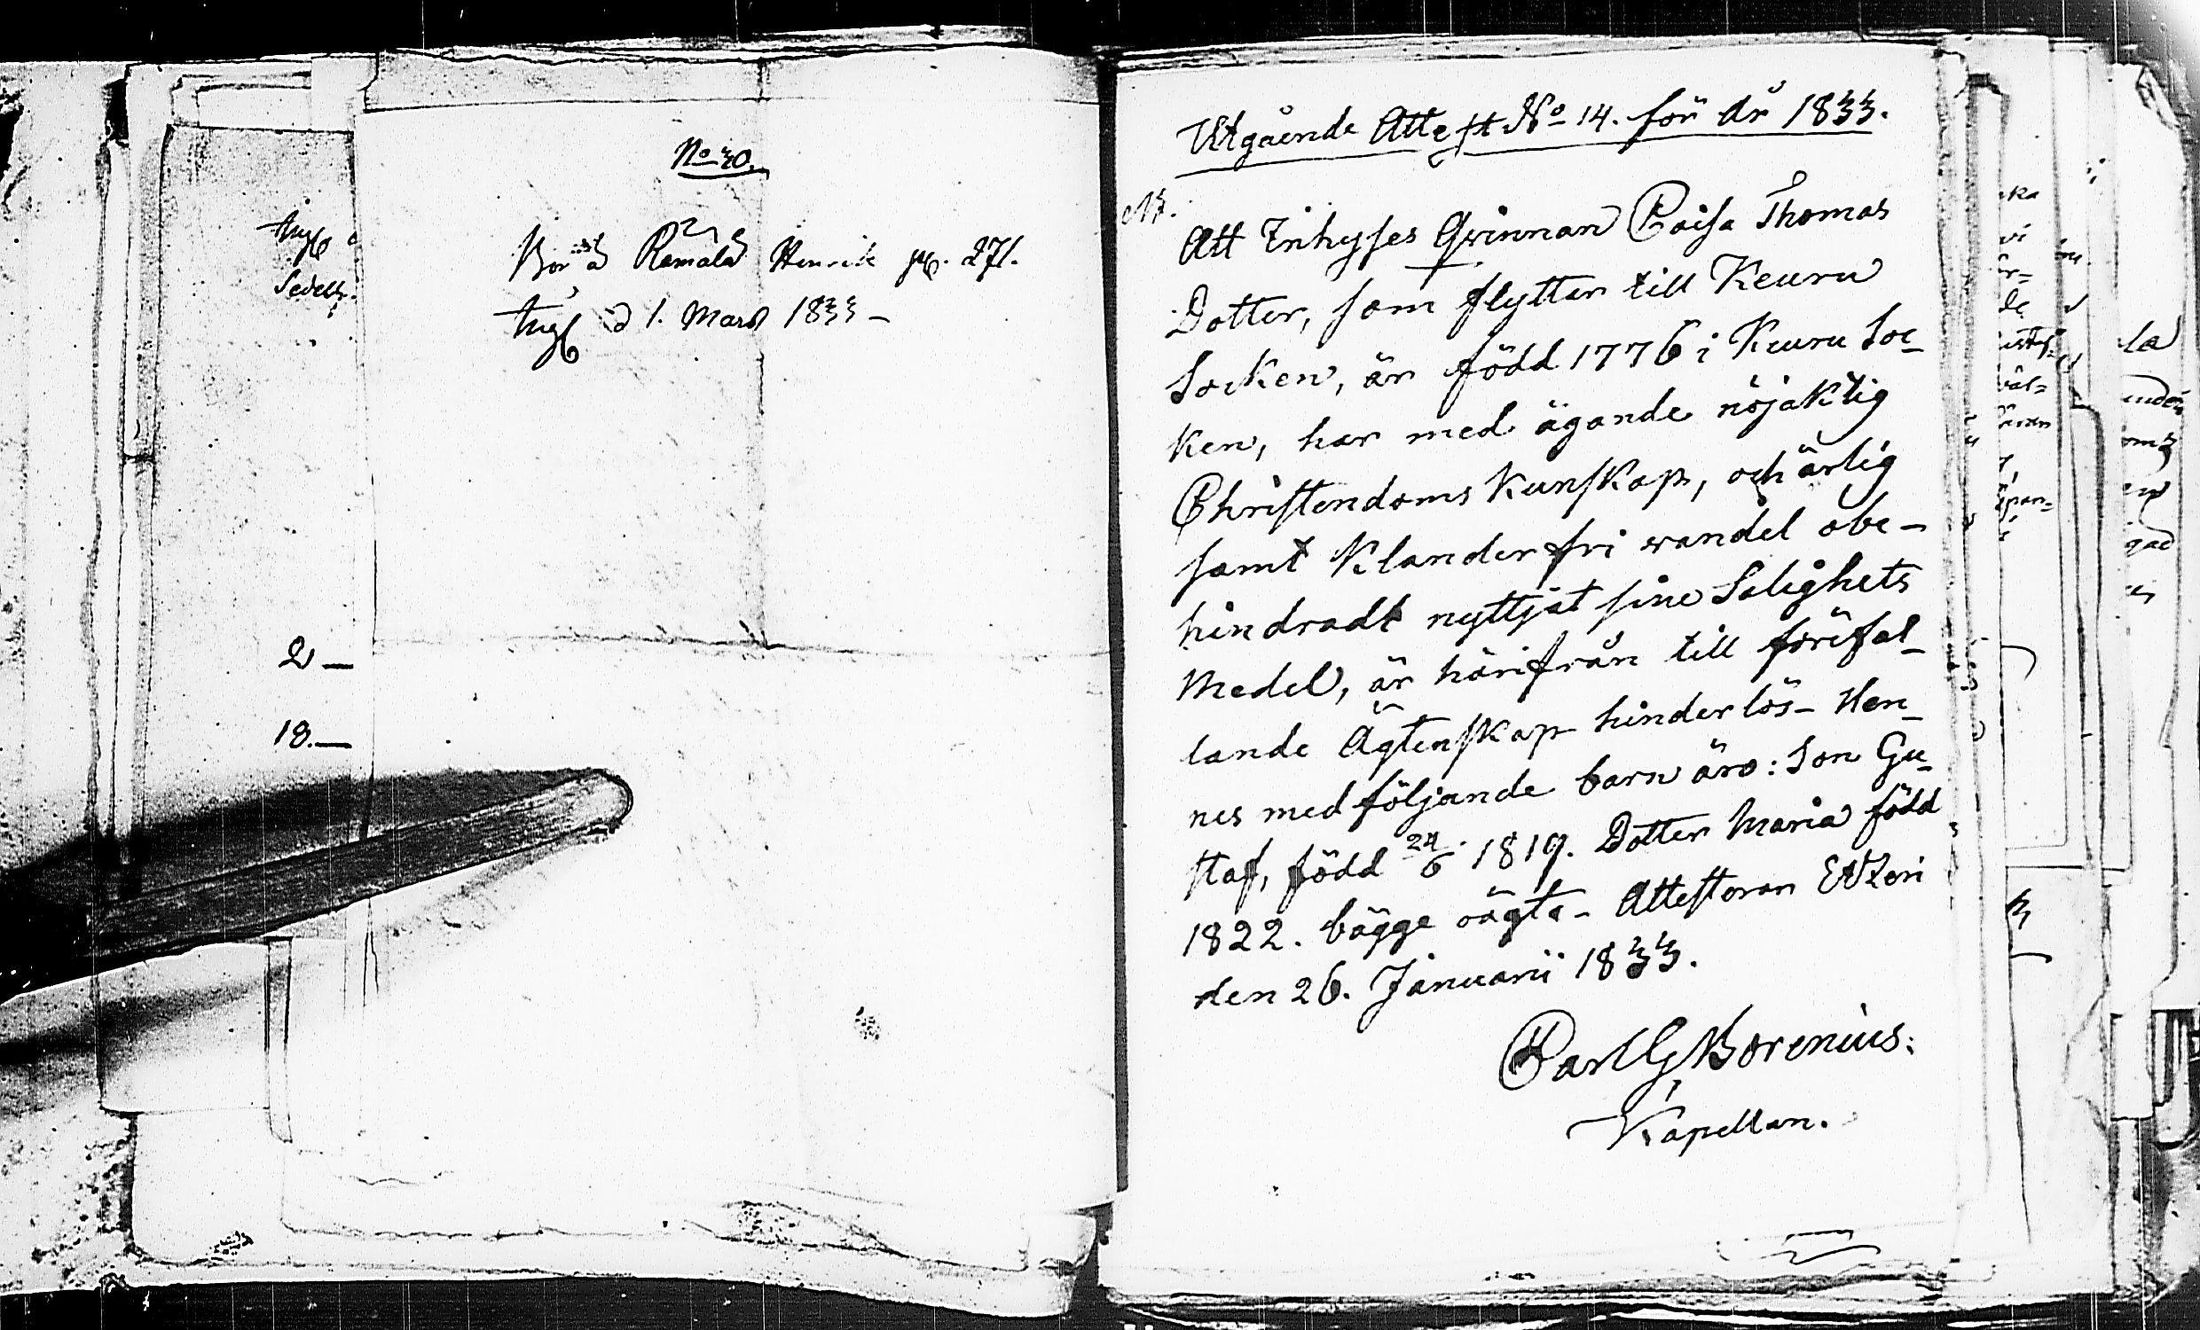 No 30.
Bor å Ramala Henrik pg. 271.
d 1. Mars 1833 –
2 —
18. —
Utgående Attest No 14. för År 1833.
Att Inhyses Qvinnan Caisa Thomas
Dotter, som flyttar till Keuru
Socken, är född 1776 i Keuru Soc-
ken, har med ägande nöjaktig
Christendoms Kunskap, och ärlig
samt Klanderfri vandel obe-
hindradt nyttjat sine Salighets
Medel, är härifrån till förefal-
lande Ägtenskap hinderlös – Hen-
nes medföljande barn äro: Son Gu-
staf, född 24/6 1819. Dotter Maria född
1822. bägge oägta – Attesteran Etzeri
den 26. Januarii 1833.
Carl G Borenius.
Kapellan.